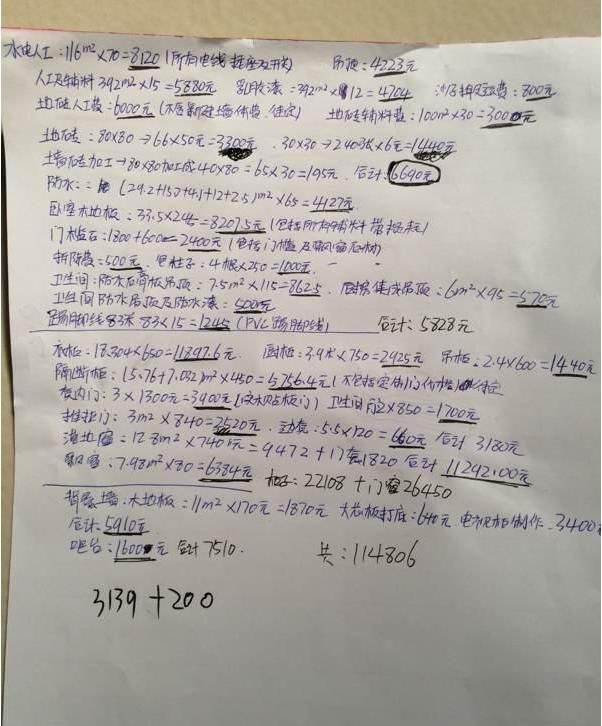 水电人工:116m²×70=8120(所有电线插座及开关) 吊顶:4223元
人工及辅料392m²×15=5880元 乳胶漆:392m²×12=4704 沙石搬运费:800元
地砖人工费:6000元(不含新建墙体费.待定) 地砖辅料费:100m²×30=3000元
地砖:80×80→66×50元=3300元.30×30→240张×6元=1440元
墙砖加工→80×80加工成40×80=65×30=195元.合计:6690元
防水::(29.2+15.7+4.1+12+2.5)m²×65=4127元
卧室木地板:33.5×245=8207.5元(包括所有辅料带损耗)
门槛石:1800+600=2400元(包括门槛及飘窗石材)
拆除费:500元.包柱子:4根×250=1000元.
卫生间:防水石膏板吊顶:7.5m²×115=862.5.厨房集成吊顶:6m²×95=570元
卫生间防水吊顶及防水漆:500元
踢脚线83米 83×15=1245(PVC踢脚线) 合计:5828元
衣柜:18.304×650=11897.6元. 厨柜:3.9米×750=2925元 吊柜:2.4×600=1440元
隔断柜:(5.76+7.032)m²×450=5756.4元(不包括定制门价格)待定
房内门:3×1300元=3900元(实木贴板门)卫生间门2×850=1700元
推拉门:3m²×840=2520元.边套:5.5×120=660元 合计3180元
落地窗:12.8m²×740元=9472+门套1820 合计11292.00元
飘窗:7.98m²×80=6384元 柜子:22108+门窗26450
背景墙.木地板:11m²×170元=1870元 大芯板打底:640元.电视柜制作.3400
合计:5910元
吧台:1600元 合计7510. 共:114806
3139+200